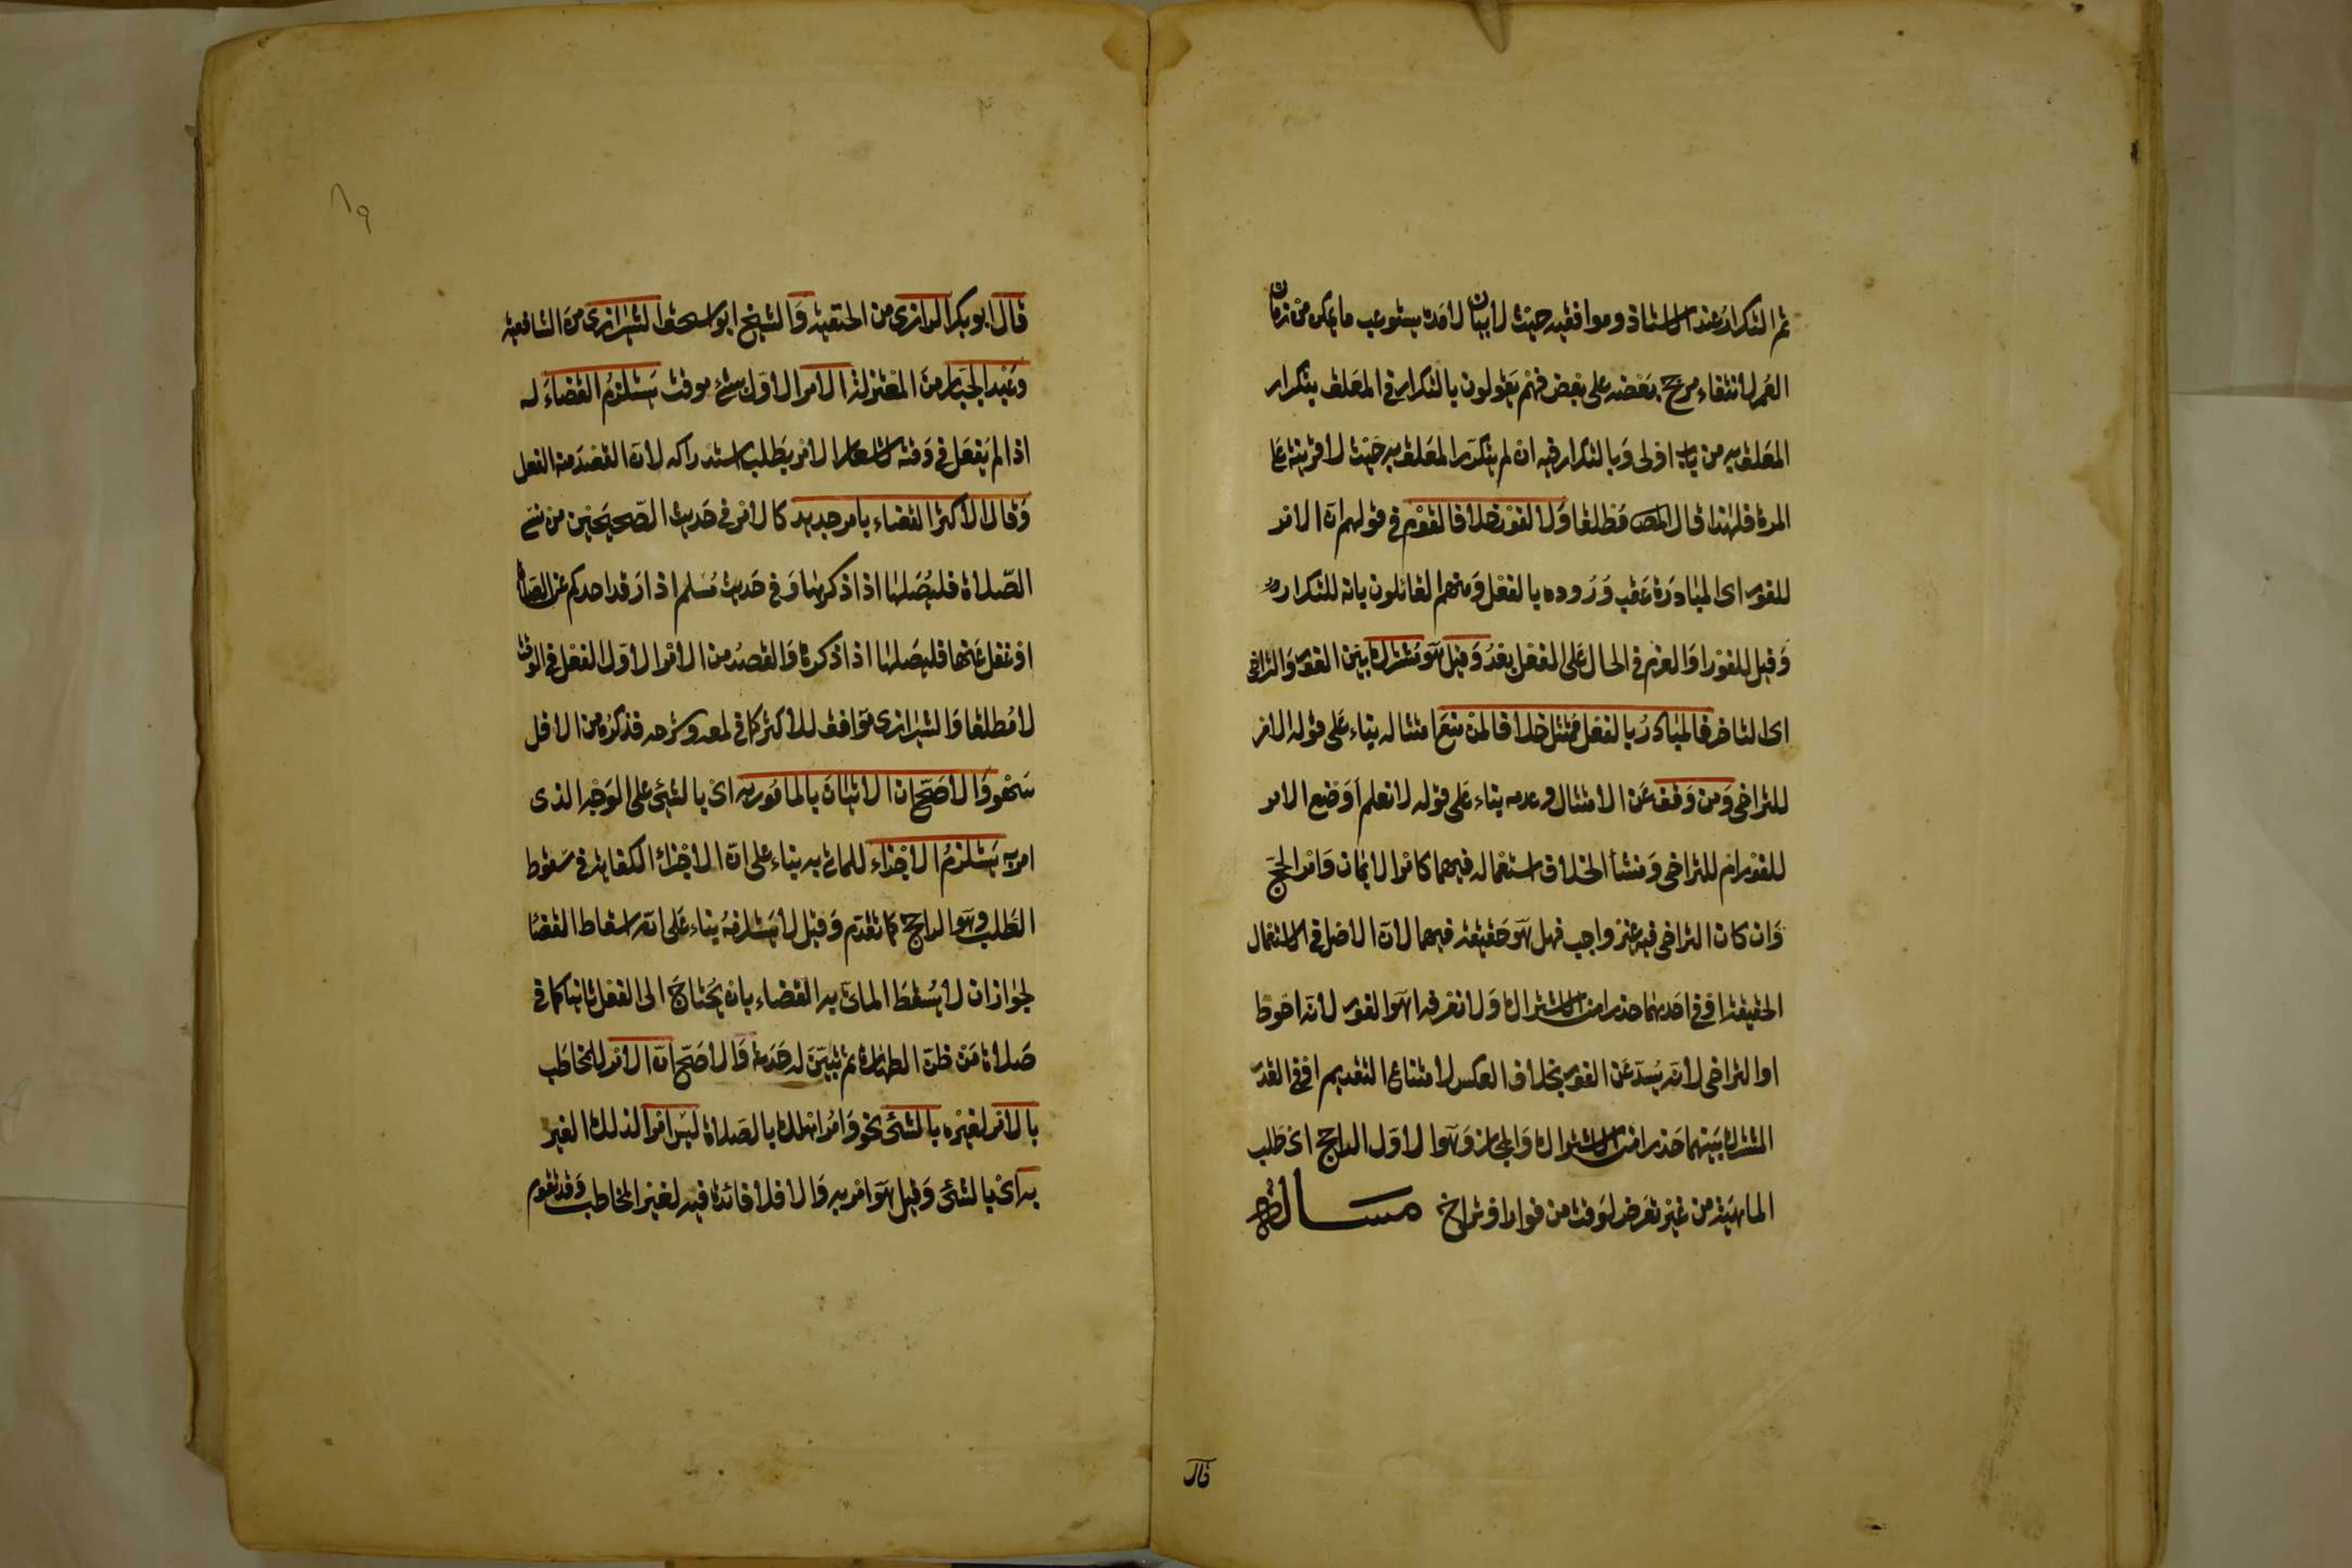 ثم التكرار عند الاستاذ وموافقيه حيث لا بيان لامده يستوعب ما يمكن من زمان
العمر لانتفاء مرجح بعضه على بعض فهم يقولون بالتكرار في المعلق بتكرار
المعلق به من باب اولى وبالتكرار فيه ان لم يتكرر المعلق به حيث لا قرينة على
المرة فلهذا قال المص مطلقا ولا لفور خلافا لقوم في قولهم ان الامر
للفور اى المبادرة عقب وروده بالفعل ومنهم القائلون بانه للتكرار
وقيل للفور او العزم في الحال على الفعل بعد وقيل هو مشترك بين الفور والتراخي
اى التاخر فالمبادر بالفعل ممتثل خلافا لمن منع امتثاله بناء على قوله الامر
للتراخي ومن وقف عن الامتثال وعدمه بناء على قوله لا نعلم اوضع الامر
للفور ام للتراخي ومنشأ الخلاف استعماله فيهما كامر الايمان وامر الحج
وان كان التراخي فيه غير واجب فهل هو حقيقة فيهما لان الاصل في الاستعمال
الحقيقة او في احدهما حذرا من الاشتراك ولا نعرفه اهو الفور لانه احوط
او التراخي لانه يسد عن الفور بخلاف العكس لامتناع التقديم او في القدر
المشترك بينهما حذرا من الاشتراك والمجاز وهو الاول الراجح اى طلب
الماهية من غير تعرض لوقت من فور او تراخ مسالة
قال
٨٩
قال ابو بكر الرازى من الحنفية والشيخ ابو اسحق الشيرازى من الشافعية
وعبد الجبار من المعتزلة الامر الاول بشئ موقت يستلزم القضاء له
اذا لم يفعل في وقته لاشعار الامر بطلب استدراكه لان القصد منه الفعل
وقال الاكثر القضاء بامر جديد كالامر في حديث الصحيحين من نسى
الصلاة فليصلها اذا ذكرها وفي حديث مسلم اذا رقد احدكم عن الصلاة
او غفل عنها فليصلها اذا ذكرها والقصد من الامر الاول الفعل في الوقت
لا مطلقا والشيرازى موافق للاكثر كما في لمعه وشرحه فذكره من الاقل
سهو والاصح ان الاتيان بالمامور به اى بالشئ على الوجه الذى
امر به يستلزم الاجزاء للماتى به بناء على ان الاجزاء الكفاية في سقوط
الطلب وهو الراجح كما تقدم وقيل لا يستلزمه بناء على انه اسقاط القضا
لجواز ان لا يسقط الماتى به القضاء بان يحتاج الى الفعل ثانيا كما في
صلاة من ظن الطهارة ثم تبين له حدثه والاصح ان الامر للمخاطب
بالامر لغيره بالشئ نحو وامر اهلك بالصلاة ليس امرا لذلك الغير
به اى بالشئ وقيل هو امر به والا فلا فائدة فيه لغير المخاطب وقد تقوم